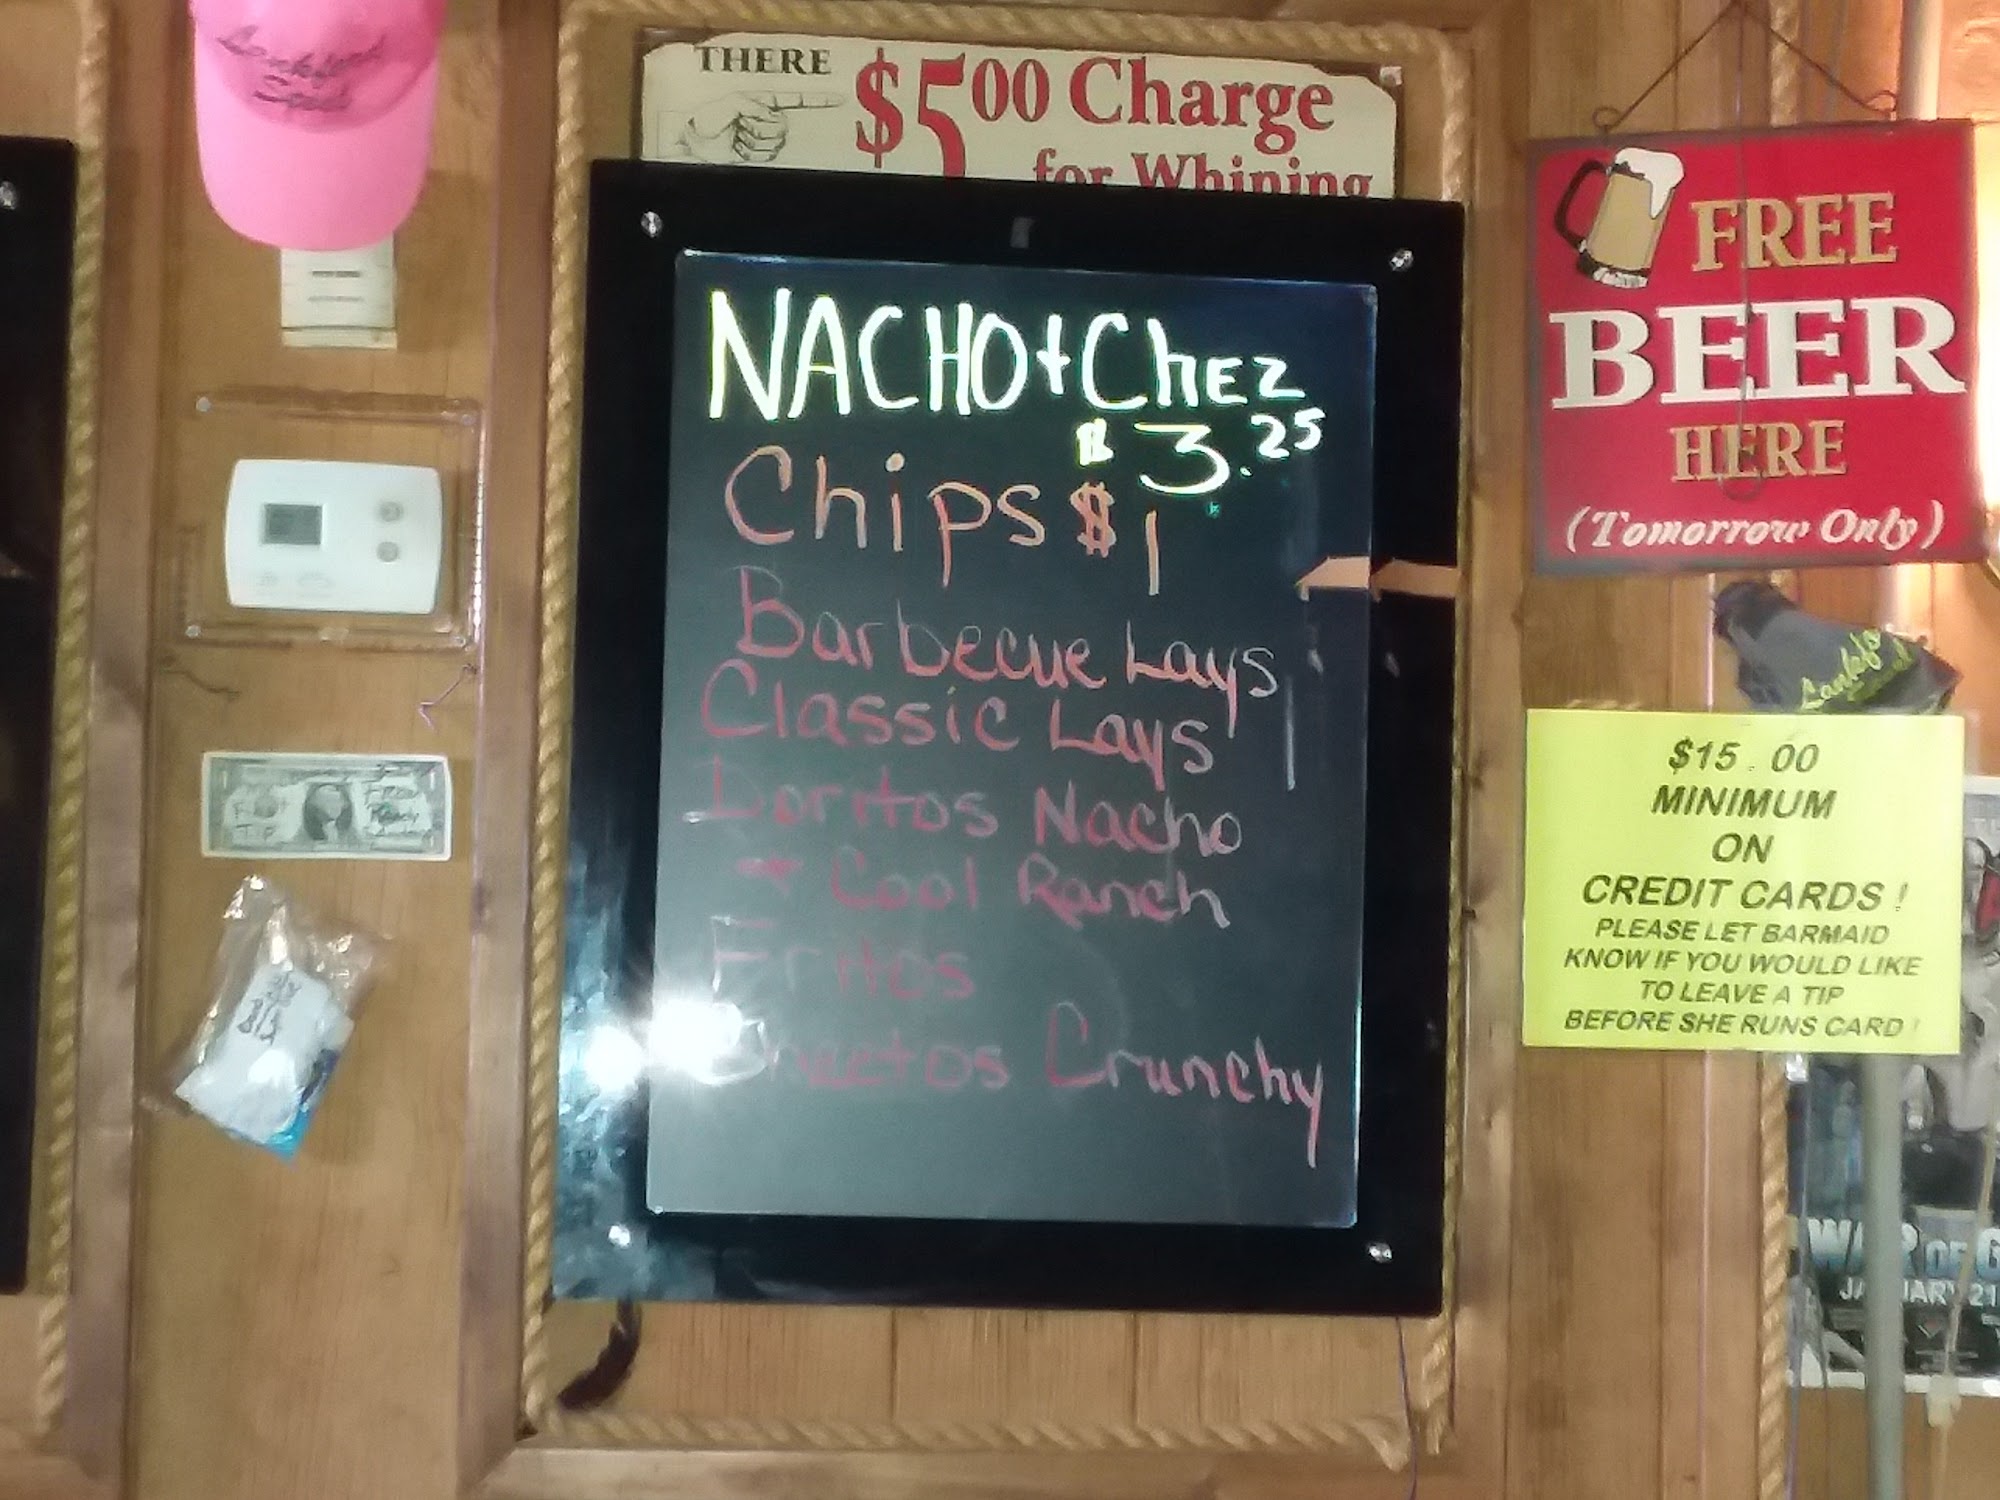 THERE
$5.00 Charge
for Whining
NACHO + ChEZ
$3.25
Chips $1
Barbecue Lays
Classic Lays
Doritos Nacho
+ Cool Ranch
Fritos
Cheetos Crunchy
FREE
BEER
HERE
(Tomorrow Only)
$15.00
MINIMUM
ON
CREDIT CARDS!
PLEASE LET BARMAID
KNOW IF YOU WOULD LIKE
TO LEAVE A TIP
BEFORE SHE RUNS CARD!
First
TIP
WAR OF G
JANUARY 21